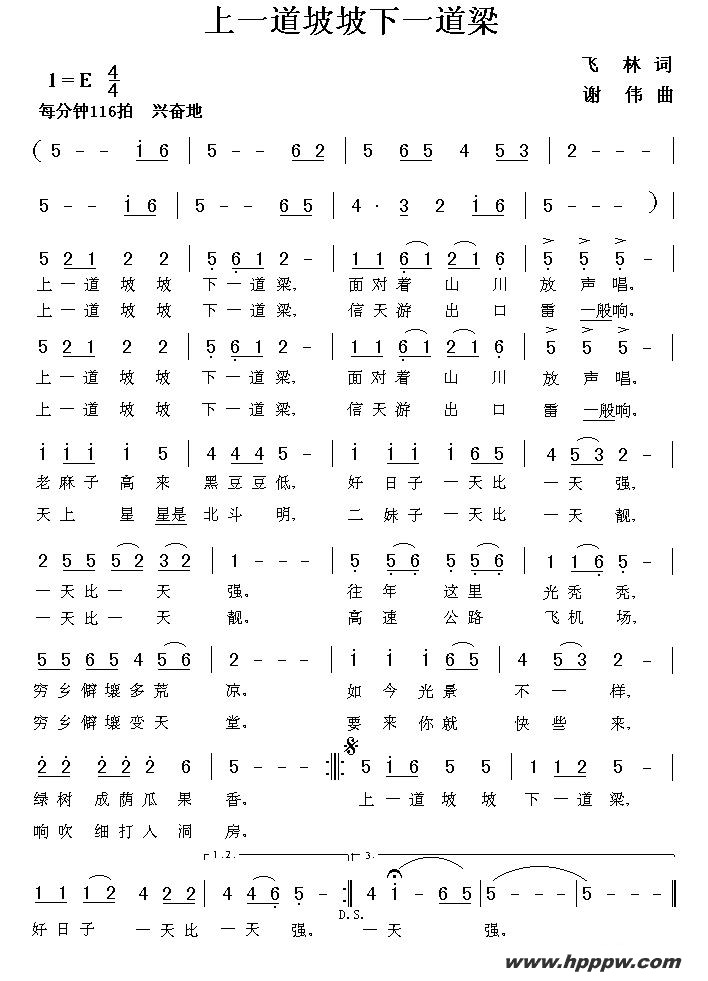 上一道坡坡下一道梁
1=E 4/4
飞 林 词
每分钟116拍 兴奋地
谢 伟 曲
( 5 - - i 6 | 5 - - 6 2 | 5 6 5 4 5 3 | 2 - - - |
5 - - i 6 | 5 - - 6 5 | 4 · 3 2 i 6 | 5 - - - )
5 2 1 2 2 | 5 6 1 2 - | 1 1 6 1 2 1 6 | 5 5 5 - |
上 一 道 坡 坡 下 一 道 梁, 面 对 着 山 川 放 声 唱。
上 一 道 坡 坡 下 一 道 梁, 信 天 游 出 口 雷 一般 响。
5 2 1 2 2 | 5 6 1 2 - | 1 1 6 1 2 1 6 | 5 5 5 - |
上 一 道 坡 坡 下 一 道 梁, 面 对 着 山 川 放 声 唱。
上 一 道 坡 坡 下 一 道 梁, 信 天 游 出 口 雷 一般 响。
i i i i 5 | 4 4 4 5 - | i i i 6 5 | 4 5 3 2 - |
老 麻 子 高 来 黑 豆 豆 低, 好 日 子 一 天 比 一 天 强,
天 上 星 星是 北 斗 明, 二 妹 子 一 天 比 一 天 靓,
2 5 5 5 2 3 2 | 1 - - - | 5 5 6 5 5 6 | 1 1 6 5 - |
一 天 比 一 天 强。 往 年 这 里 光 秃 秃,
一 天 比 一 天 靓。 高 速 公 路 飞 机 场,
5 5 6 5 4 5 6 | 2 - - - | i i i i 6 5 | 4 5 3 2 - |
穷 乡 僻 壤 多 荒 凉。 如 今 光 景 不 一 样,
穷 乡 僻 壤 变 天 堂。 要 来 你 就 快 些 来,
2 2 2 2 2 6 | 5 - - - :||: 5 i 6 5 5 | 1 1 2 5 - |
绿 树 成 荫 瓜 果 香。 上 一 道 坡 坡 下 一 道 梁,
响 吹 细 打 人 洞 房。
1.2. 3.
1 1 1 2 4 2 2 | 4 4 6 5 - :|| 4 i - 6 5 | 5 - - 5 - - ||
D.S.
好 日 子 一 天 比 一 天 强。 一 天 强。
www.hpppw.com